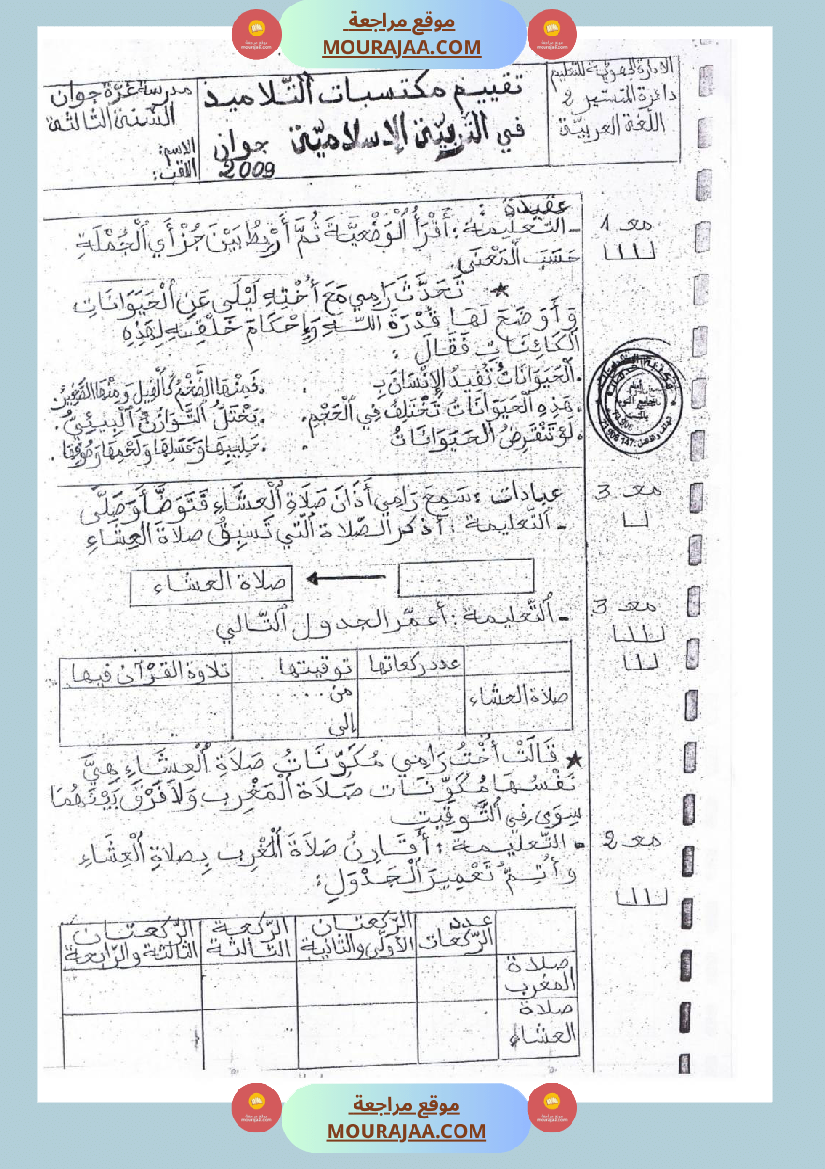 موقع مراجعة
MOURAJAA.COM
الإدارة الجهوية للتعليم
دائرة المنستير 2
اللغة العربيّة
تقييم مكتسبات التّلاميذ
في التّربيّة الإسلاميّة جوان
2009
مدرسة غرّة جوان
السّنة الثّالثة
الاسم:
اللقب:
عقيدة
مع 1
- التّعليمة : أَقْرَأُ الْوَضْعِيَّةَ ثُمَّ أَرْبِطُ بَيْنَ جُزْأَيِ الْجُمْلَةِ
حَسَبَ الْمَعْنَى
★ تَحَدَّثَ رَامِي مَعَ أُخْتِهِ لَيْلَى عَنِ الْحَيَوَانَاتِ
وَأَوْضَحَ لَهَا قُدْرَةَ اللّهِ وَإِحْكَامَ خَلْقِهِ لِهَذِهِ
الْكَائِنَاتِ فَقَالَ :
. الْحَيَوَانَاتُ تُفِيدُ الإِنْسَانَ بِ . . فَمِنْهَا الضَّخْمُ كَالْفِيلِ وَمِنْهَا
. هَذِهِ الْحَيَوَانَاتُ تَخْتَلِفُ فِي الْحَجْمِ . . يَخْتَلُّ التَّوَازُنُ الْبِيئِيُّ .
. لَوْ تَنْقَرِضُ الْحَيَوَانَاتُ . . حَلِيبِهَا وَعَسَلِهَا وَلَحْمِهَا وَصُوفِهَا .
مع 3
عبادات : سَمِعَ رَامِي أَذَانَ صَلَاةِ الْعِشَاءِ فَتَوَضَّأَ وَصَلَّى
- التّعليمة : أذكر الصّلاة الّتي تَسبِقُ صلاةَ العِشَاءِ
صلاة العشاء
مع 3
- التّعليمة : أعمّر الجدول التّالي
عدد ركعاتها توقيتها تلاوة القرْآن فيها
صلاة العشاء من ....
إلى
★ قَالَتْ أُخْتُ رَامِي مُكَوِّنَاتُ صَلَاةِ الْعِشَاءِ هِيَّ
نَفْسُهَا مُكَوِّنَات صَلَاةِ الْمَغْرِب وَلَا فَرْقَ بَيْنَهُمَا
سِوَى فِي التَّوقِيتِ
مع 2
• التّعليمة : أُقَارِنُ صَلَاةَ الْمَغْرِب بِصلاةِ الْعِشَاءِ
وأُتِمُّ تَعْمِيرَ الْجَدْوَلِ :
عدد الرّكعات الرّكعتان الأولى والثانية الرّكعة الثّالثة الرّكعتان الثالثة والرّابعة
صلاة المغرب
صلاة العشاء
موقع مراجعة
MOURAJAA.COM